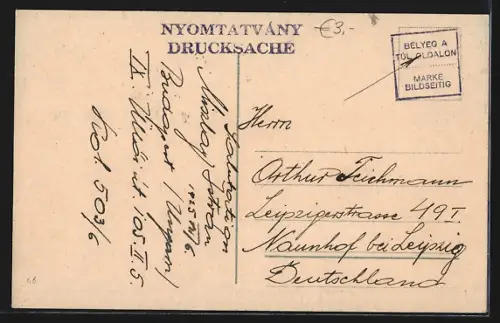 NYOMTATVÁNY
DRUCKSACHE
€3,-
BÉLYEG A
TÚL OLDALON
MARKE
BILDSEITIG
Salutation
István
1925
Budapest (Ungarn)
IX. Üllői út 105. II. 5.
503/6
Herrn
Arthur Teichmann
Leipzigerstrasse 49 I.
Naunhof bei Leipzig
Deutschland